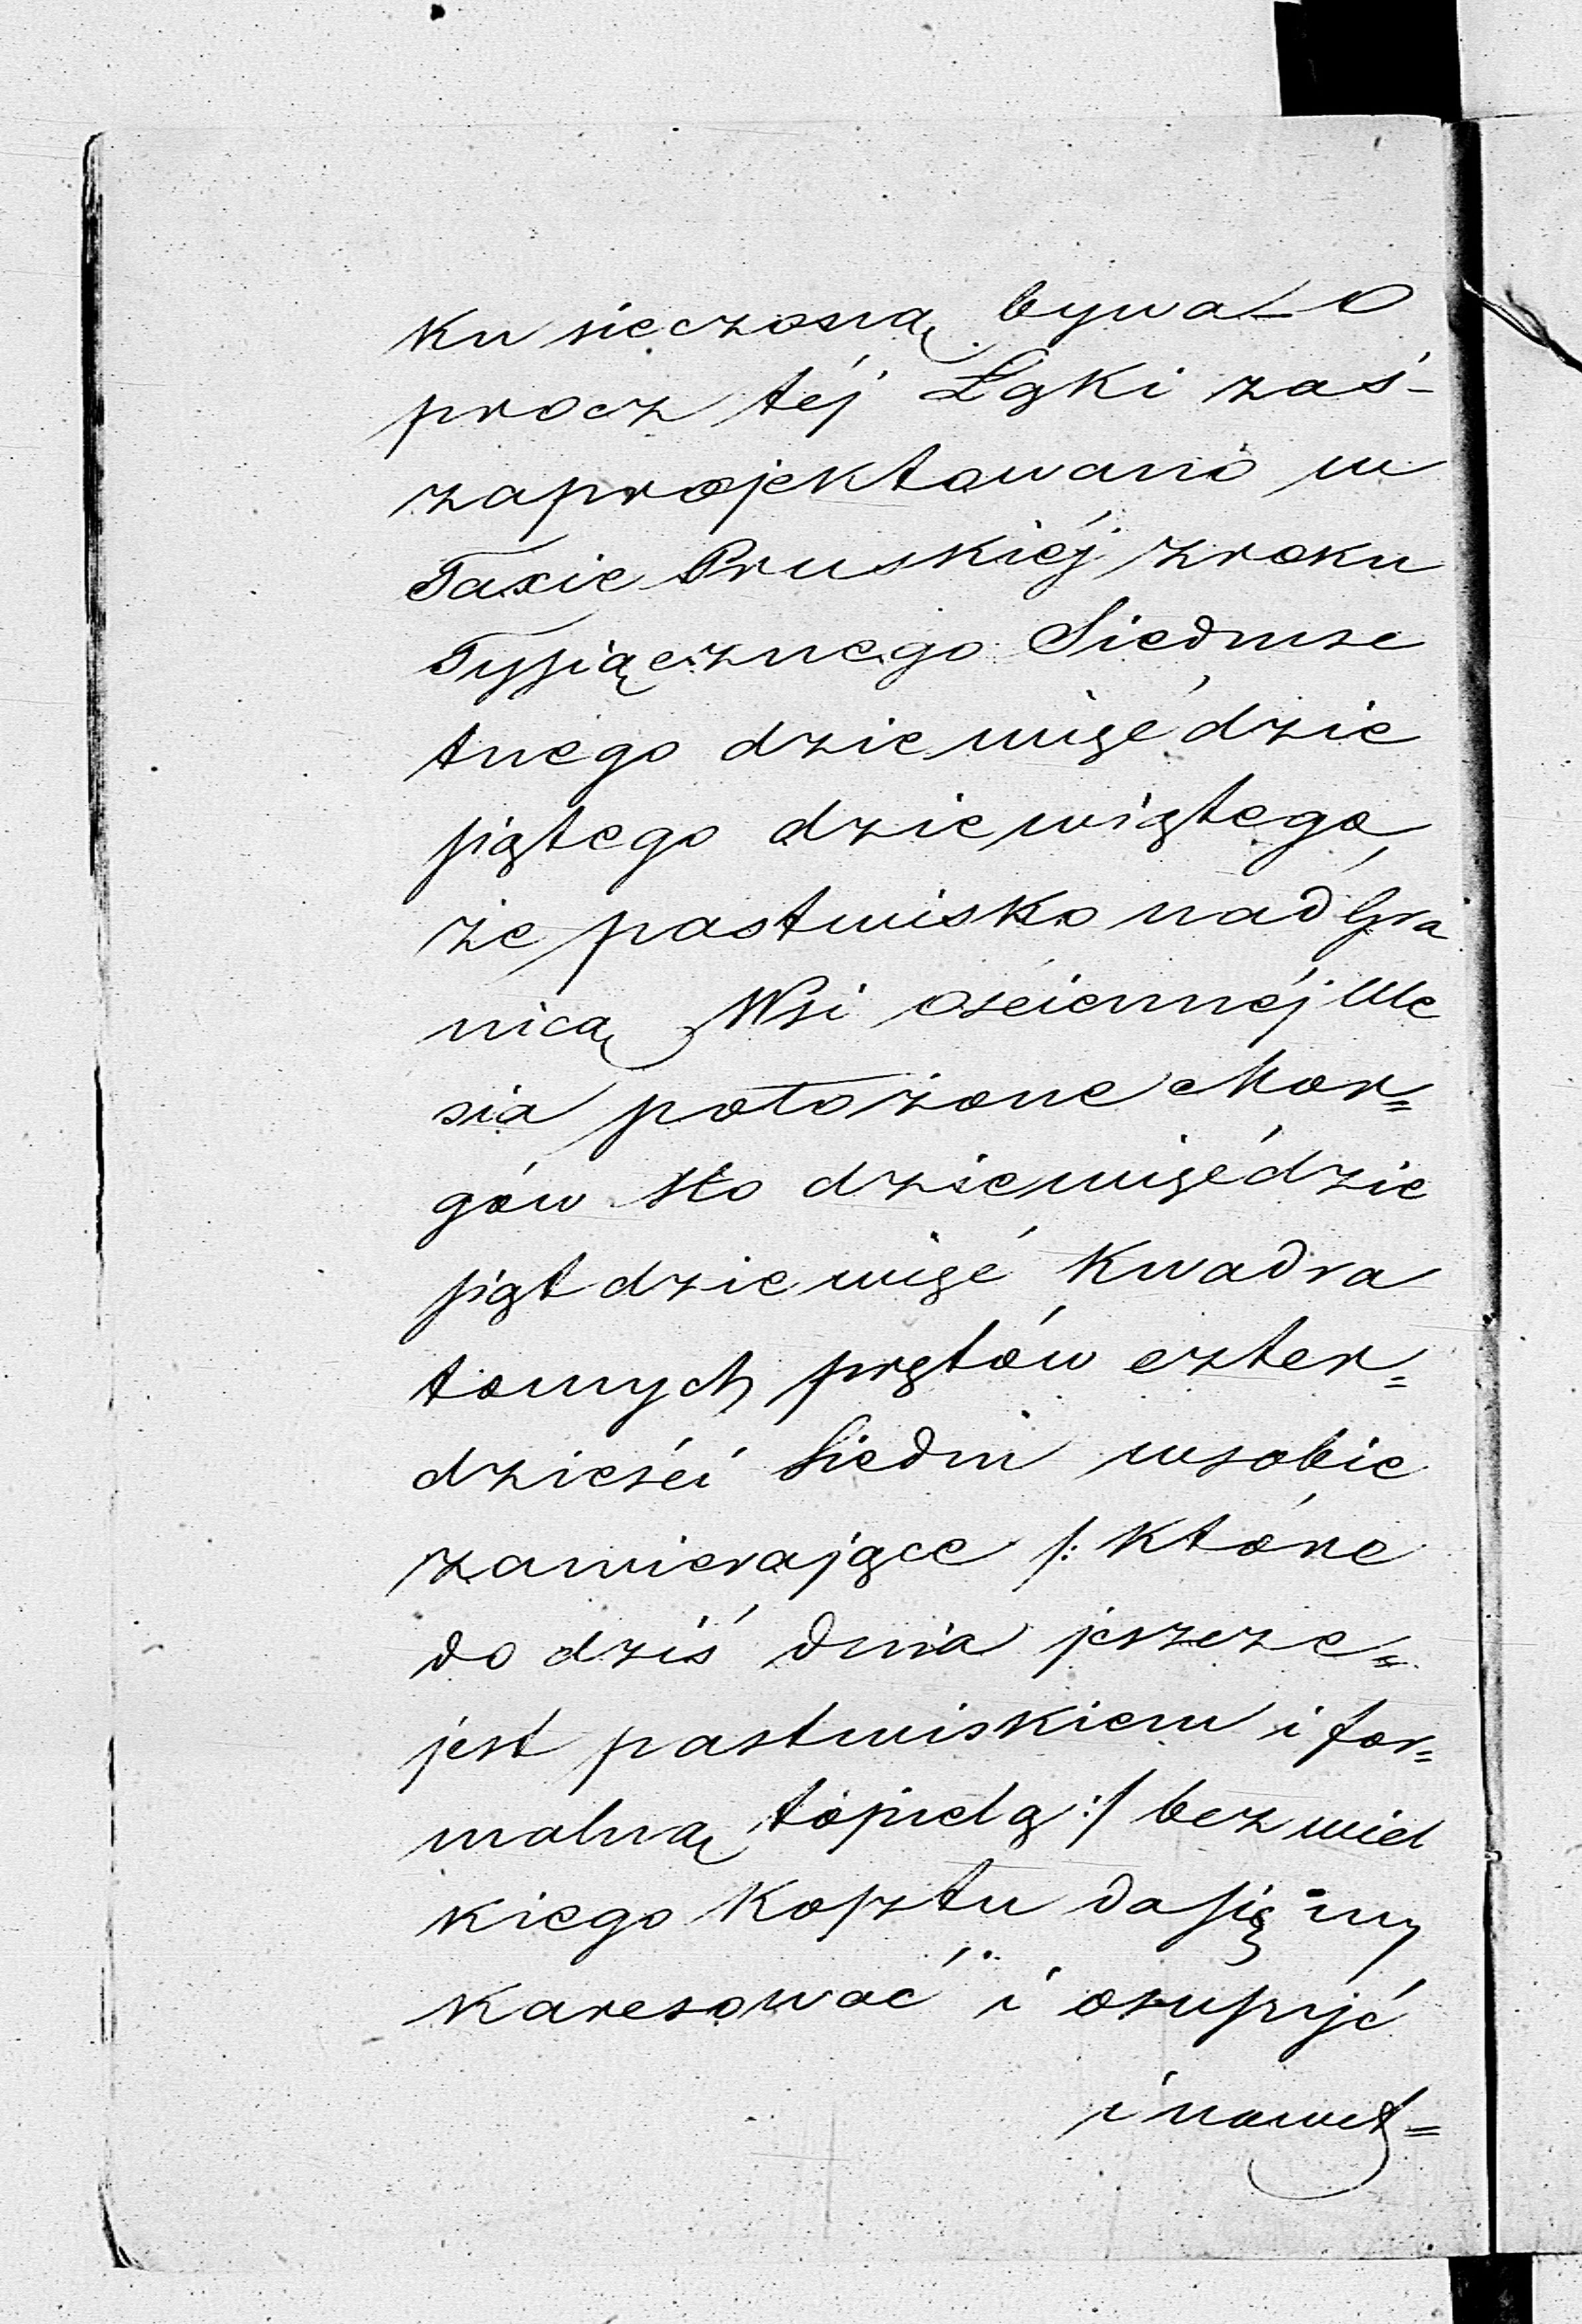 ku sieczoną bywa – O
procz téj Łąki zaś –
zaprojektowano w
Taxie Pruskiéj z roku
Tysiącznego Siedmse
tnego dziewięćdzie
siątego dziewiątego,
że pastwisko nad Gra
nicą Wsi ościennéj Ule
sia położone Mor=
gów sto dziewięćdzie
siąt dziewięć Kwadra
towych prętów czter=
dzieści Siedm w sobie
zawierające /: które
do dziś dnia jeszcze=
jest pastwiskiem i for=
malną topielą :/ bez wiel
kiego Kosztu da się wy
karesować i osuszyć
i nawet=